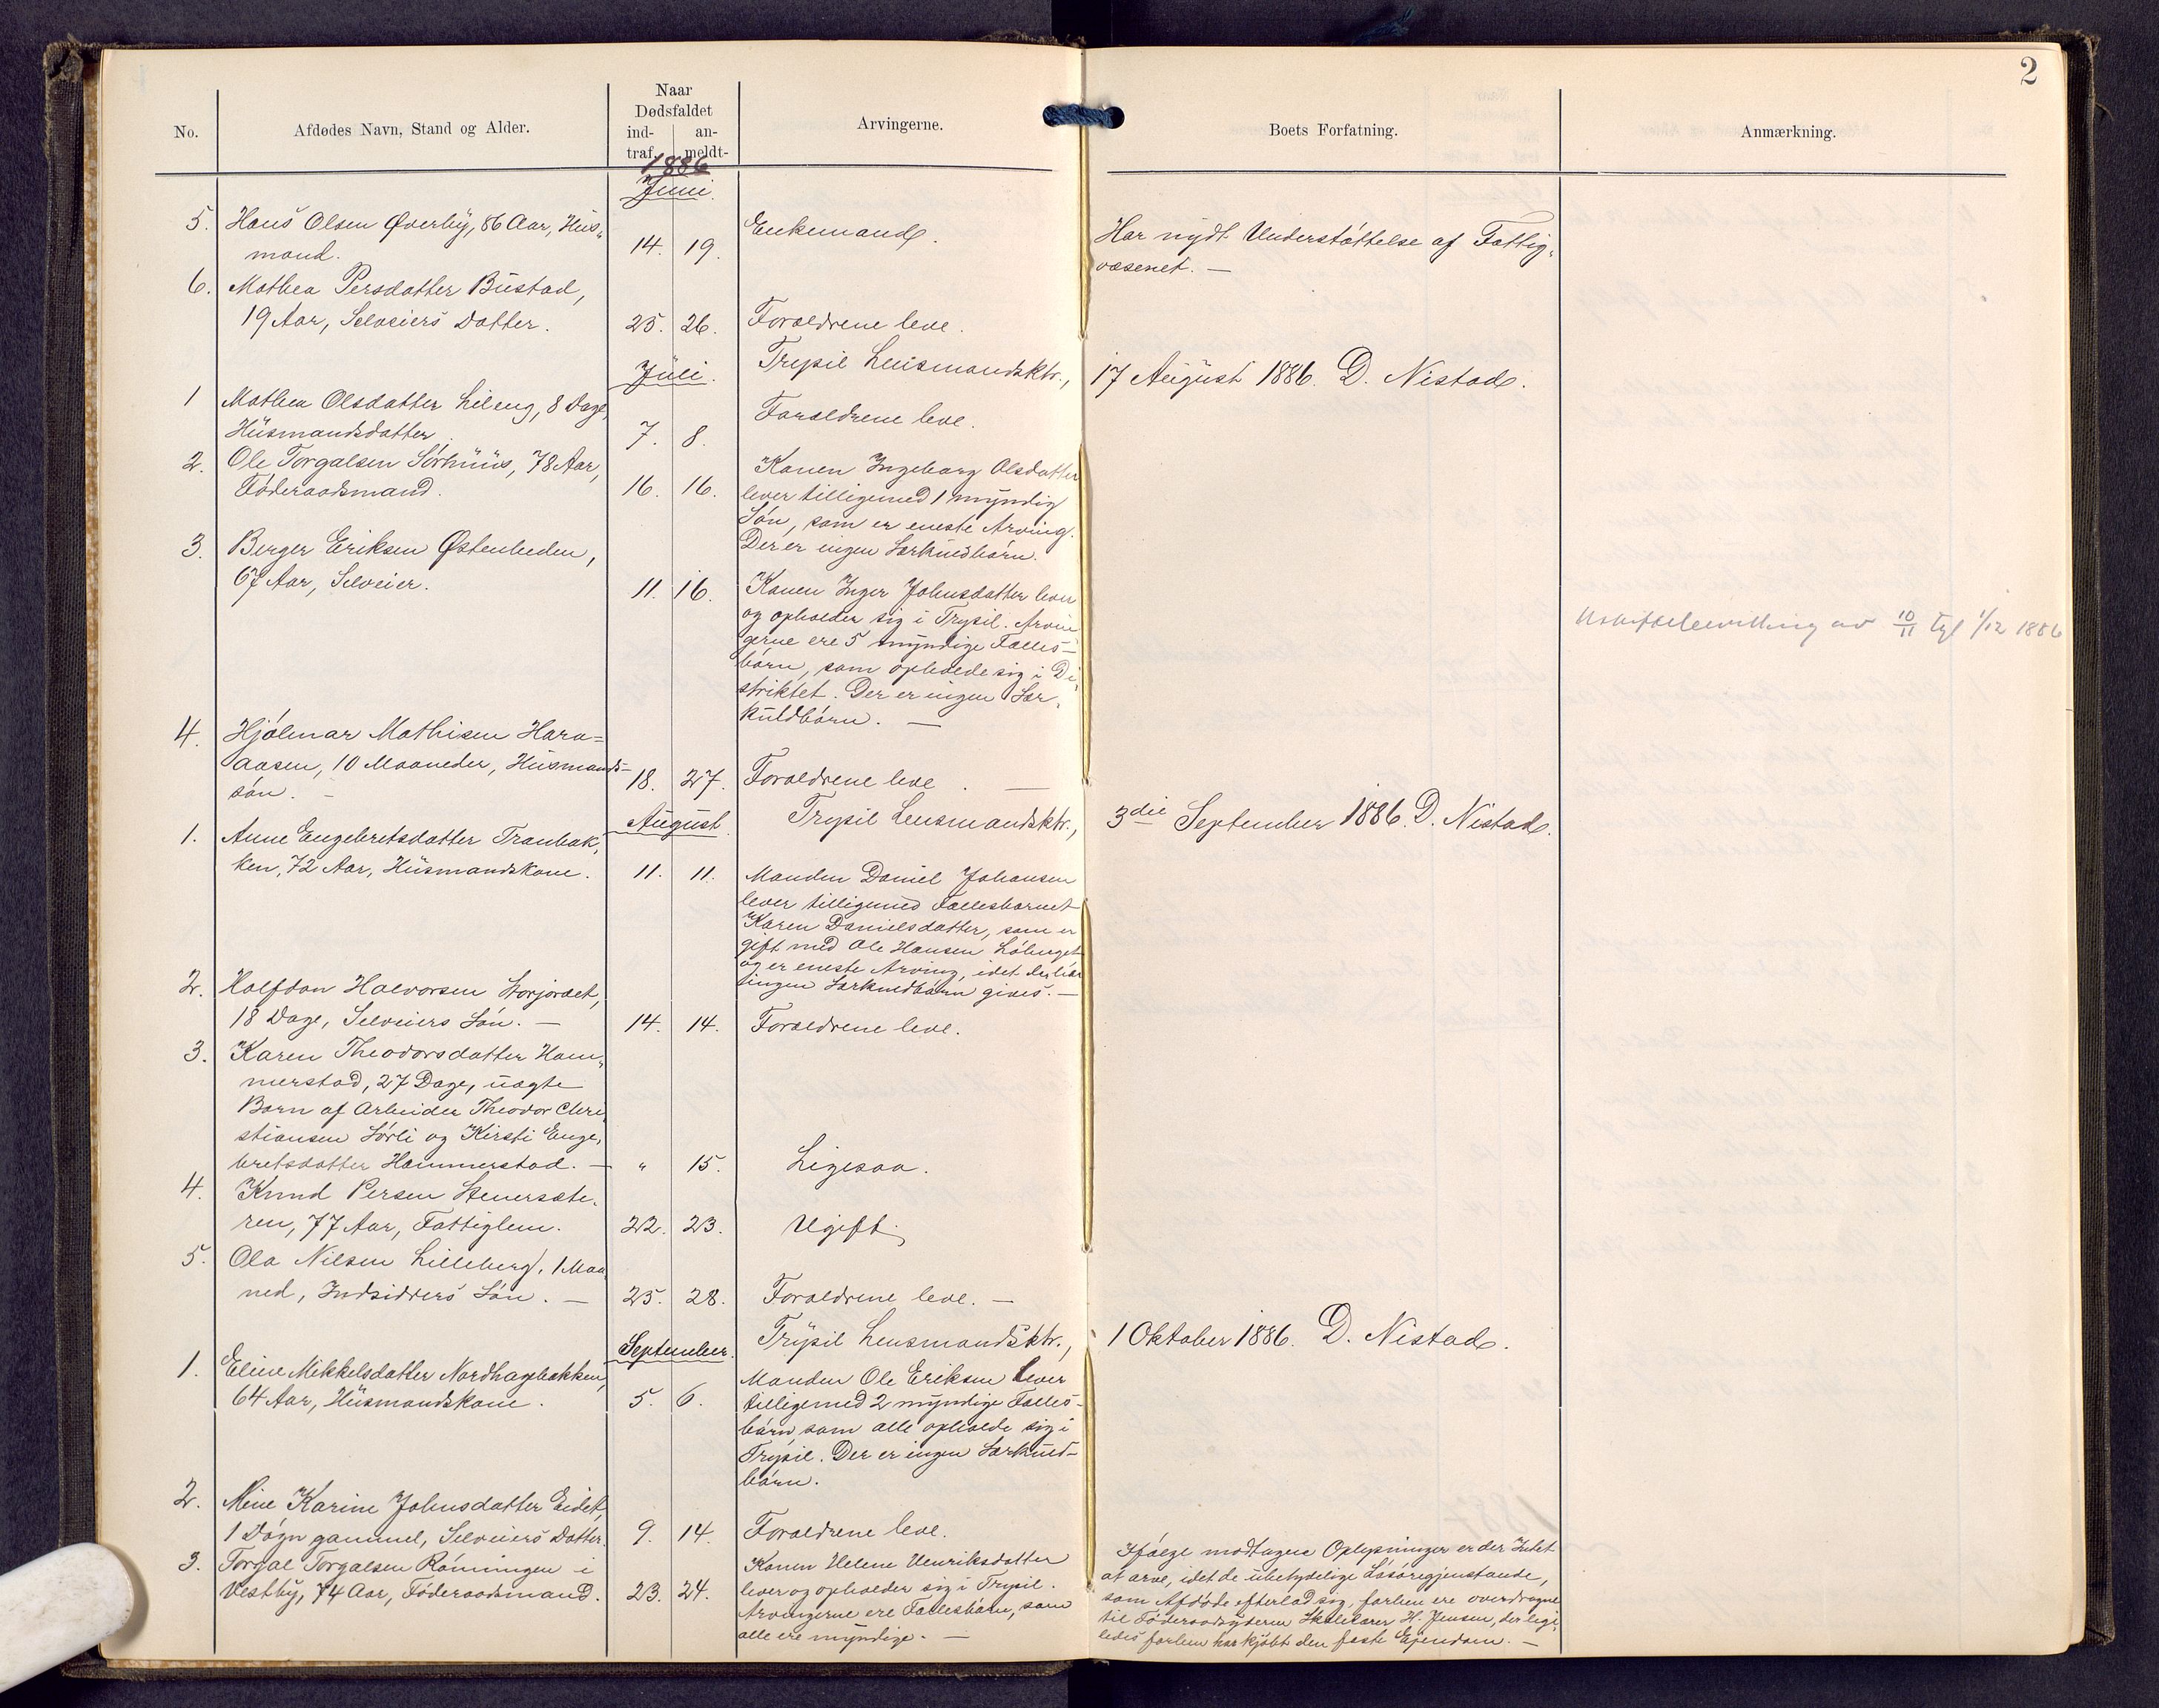 2
No.
Afdødes Navn, Stand og Alder.
Naar
Dødsfaldet
ind-
traf.
an-
meldt-
Arvingerne.
Boets Forfatning.
Anmærkning.
1886
Juni.
5. Hans Olsen Øverby, 86 Aar, Hus„
mand. 14. 19. Enkemand. Har nydt Understøttelse af Fattig„
væsenet. —
6. Mathea Persdatter Bustad,
19 Aar, Selveiers Datter. 25. 26. Forældrene leve.
Juli. Trysil Lensmandsktr., 17 August 1886. D. Nistad.
1 Mathea Olsdatter Lileng, 8 Dage,
Husmandsdatter. 7. 8. Forældrene leve.
2. Ole Torgalsen Sørhuus, 78 Aar,
Føderaadsmand. 16. 16. Konen Ingeborg Olsdatter
lever tilligemed 1 myndig
Søn, som er eneste Arving.
Der er ingen Særkuldbørn.
3. Berger Eriksen Østenheden,
67 Aar, Selveier. 11. 16. Konen Inger Johnsdatter lever
og opholder sig i Trysil. Arvin
gerne ere 5 myndige Fælles-
børn, som opholde sig i Di„
striktet. Der er ingen Sær„
kuldbørn. —
10/11 Tgl 1/12 1886
4. Hjalmar Mathisen Hara=
aasen, 10 Maaneder, Husmands-
søn. — 18. 27. Forældrene leve. —
August Trysil Lensmandsktr., 3die September 1886. D. Nistad.
1. Anne Engebretsdatter Tranbak„
ken, 72 Aar, Husmandskone. 11. 11. Manden Daniel Johansen
lever tilligemed Fællesbarnet
Karen Danielsdatter, som er
gift med Ole Hansen
og er eneste Arving, idet der
ingen Særkuldbørn gives. —
2. Halfdan Halvorsen Storjordet,
18 Dage, Selveiers Søn. — 14. 14. Forældrene leve.
3. Karen Theodorsdatter Ham„
merstad, 27 Dage, uægte
Barn af Arbeider Theodor Chri
stiansen Sørli og Kirsti Enge„
bretsdatter Hammerstad. — „ 15. Ligesaa.
4. Knud Persen Stenersæte„
ren, 77 Aar, Fattiglem. 22. 23. Ugift.
5. Ola Nilsen Lilleberg, 1 Maa„
ned, Indsidders Søn. — 25. 28. Forældrene leve. —
September. Trysil Lensmandsktr., 1 Oktober 1886. D. Nistad.
1. Eline Mikkelsdatter Nordhagebakken,
64 Aar, Husmandskone. 5. 6. Manden Ole Eriksen lever
tilligemed 2 myndige Fælles-
børn, som alle opholde sig i
Trysil. Der er ingen Særkuld-
børn.
2. Mine Karine Johnsdatter Eidet,
1 Døgn gammel, Selveiers Datter. 9. 14. Forældrene leve.
3. Torgal Torgalsen Rønningen i
Vestby, 74 Aar, Føderaadsmand. 23. 24. Konen Helene Henriksdatter
lever og opholder sig i Trysil.
Arvingerne ere Fællesbørn, som
alle ere myndige. —
Ifølge modtagne Oplysninger er der Intet
at arve, idet de ubetydelige Løsøregjenstande,
som Afdøde efterlod sig, forhen ere overdragne
til Føderaadsyderen Skolelærer H. Jensen, der lige„
ledes forhen har kjøbt den faste Ejendom. —